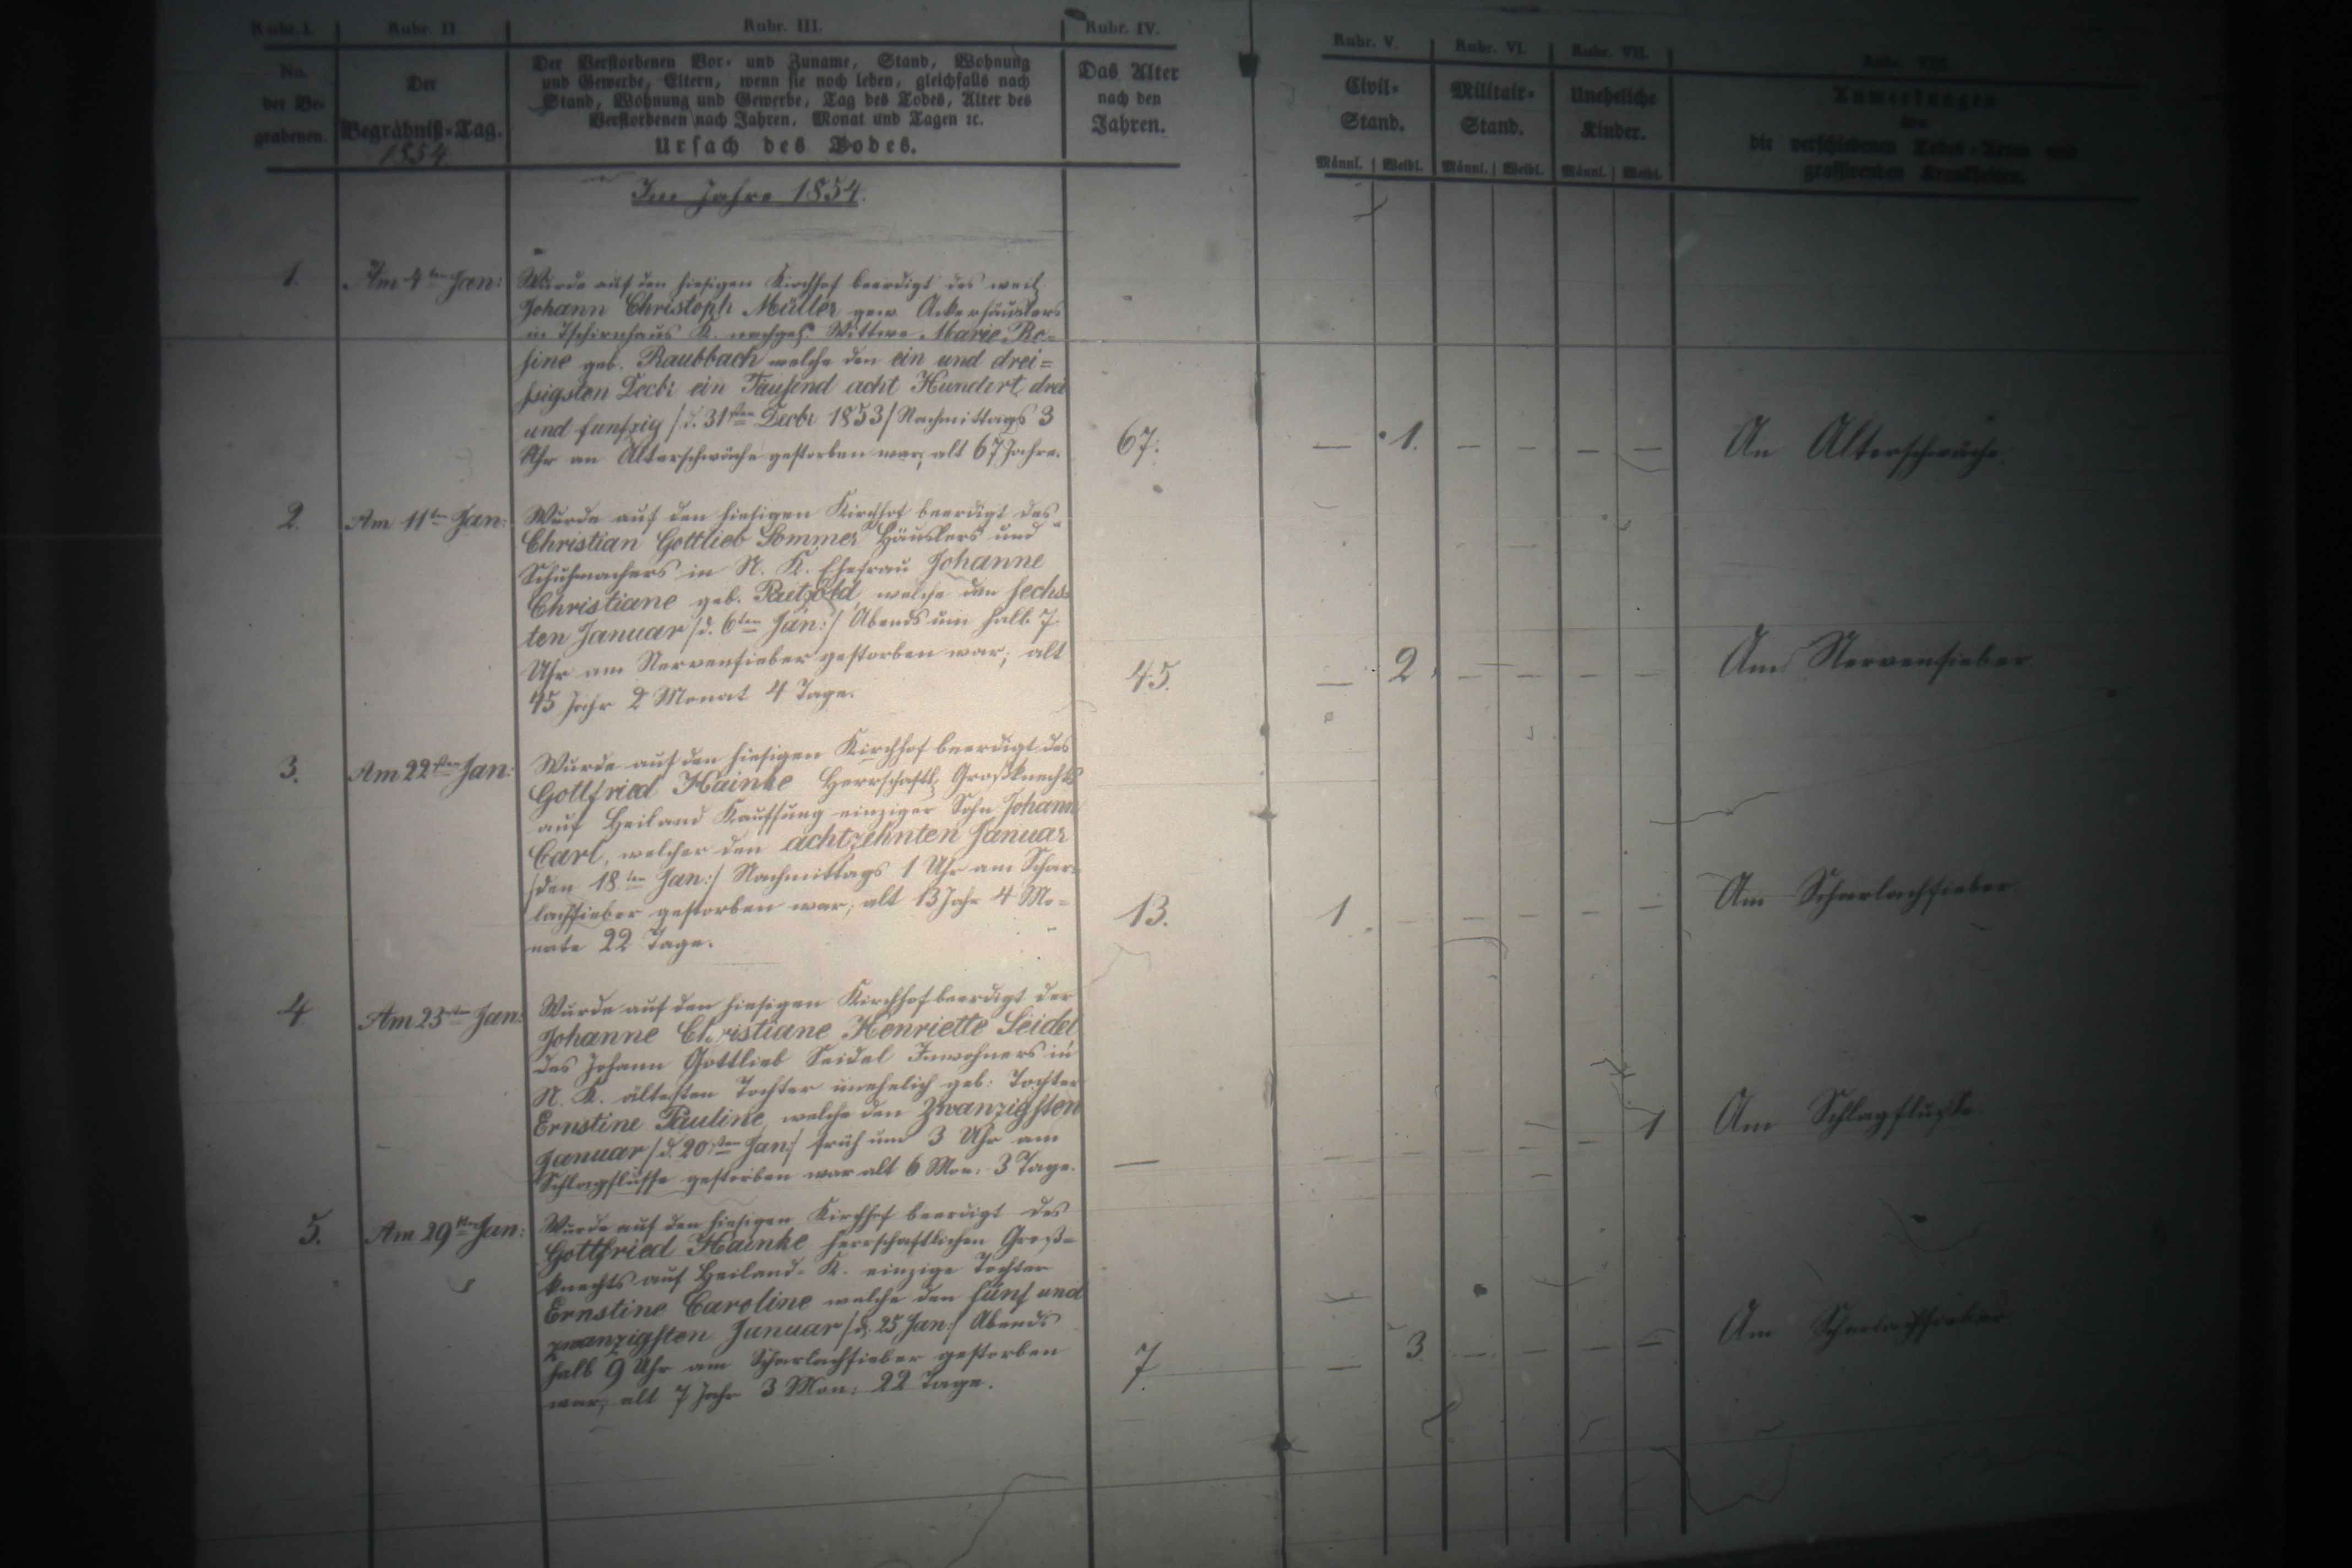 Rubr. I. Rubr. II Rubr. III. Rubr. IV. Rubr. V. Rubr. VI. Rubr. VII. Rubr. VIII.
No. der Be- grabenen.
Der Begräbniß-Tag. 1854
Der Verstorbenen Vor- und Zuname, Stand, Wohnung
und Gewerbe, Eltern, wenn sie noch leben, gleichfalls nach
Stand, Wohnung und Gewerbe, Tag des Todes, Alter des
Verstorbenen nach Jahren, Monat und Tagen ꝛc.
Ursach des Todes.
Das Alter
nach den
Jahren.
Civil-
Stand.
Männl. | Weibl.
Militair-
Stand.
Männl. | Weibl.
Uneheliche
Kinder.
Männl. | Weibl.
Anmerkungen
über
die verschiedenen Todes-Arten und
grassirenden Krankheiten.
Im Jahre 1854.
1. Am 4ten Jan:
Wurde auf den hiesigen Kirchhof beerdigt des weil.
Johann Christoph Müller gew Ackerhäuslers
in Tschirnhaus K. nachgel. Wittwe Marie Ro=
sine geb. Raubbach welche den ein und drei=
ssigsten Decbr ein Tausend acht Hundert drei
und funfzig /d. 31sten Decbr 1853/ Nachmittags 3
Uhr an Altersschwäche gestorben war; alt 67 Jahre.
67. — 1. — — — — An Altersschwäche.
2. Am 11ten Jan:
Wurde auf den hiesigen Kirchhof beerdigt des
Christian Gottlieb Sommer Häuslers und
Schuhmachers in N. K. Ehefrau Johanne
Christiane geb. welche den sechs=
ten Januar /d. 6ten Jan:/ Abends um halb 7
Uhr am Nervenfieber gestorben war; alt
45 Jahr 2 Monat 4 Tage.
45. — 2. — — — — Am Nervenfieber
3. Am 22sten Jan:
Wurde auf den hiesigen Kirchhof beerdigt des
Gottfried Hainke Herrschaftl. Großknechts
auf Heiland Kauffung einziger Sohn Johann
Carl, welcher den achtzehnten Januar
/den 18ten Jan:/ Nachmittags 1 Uhr am Schar=
lachfieber gestorben war; alt 13 Jahr 4 Mo=
nate 22 Tage.
13. 1 — — — — — Am Scharlachfieber
4 Am 23sten Jan:
Wurde auf den hiesigen Kirchhof beerdigt der
Johanne Christiane Henriette Seidel
des Johann Gottlieb Seidel Inwohners in
N. K. ältesten Tochter unehelich geb: Tochter
Ernstine Pauline, welche den zwanzigsten
Januar /d. 20sten Jan:/ früh um 3 Uhr am
Schlagflusse gestorben war alt 6 Mon: 3 Tage.
— — — — — — 1 Am Schlagflusse
5. Am 29sten Jan:
Wurde auf den hiesigen Kirchhof beerdigt des
Gottfried Hainke herrschaftlichen Groß=
knechts auf Heiland-K. einzige Tochter
Ernstine Caroline welche den fünf und
zwanzigsten Januar /d. 25 Jan:/ Abends
halb 9 Uhr am Scharlachfieber gestorben
war; alt 7 Jahr 3 Mon: 22 Tage.
7. — 3 — — — — Am Scharlachfieber